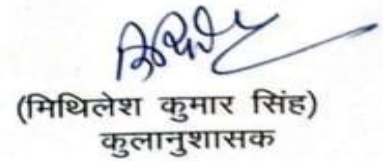 (मिथिलेश कुमार सिंह)
कुलानुशासक